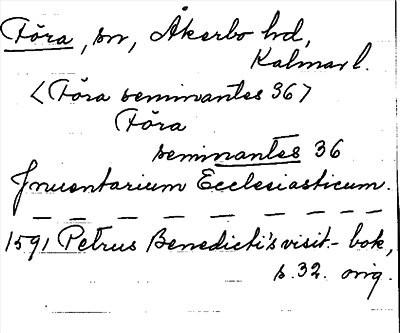 Föra, sn, Åkerbo hd,
Kalmar l.
<Föra seminantes 36>
Föra
seminantes 36
Inuentarium Ecclesiasticum.
1591 Petrus Benedicti's visit.- bok,
s. 32. orig.